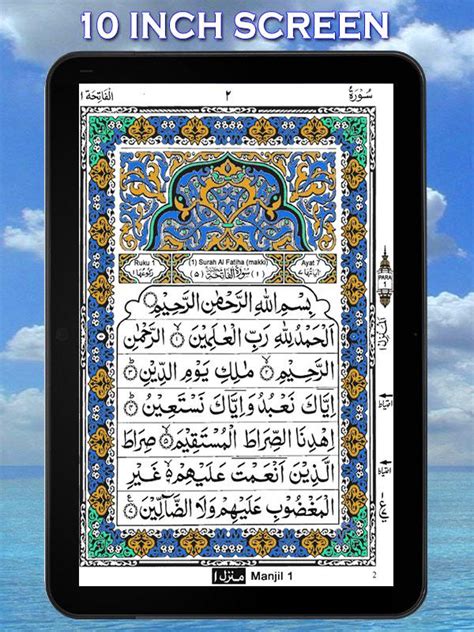 10 INCH SCREEN
سُورَة ٢ اَلْفَاتِحَة ١
Ruku 1 (1) Surah Al Fatiha (makki) Ayat 7
PARA
1
بِسْمِ اللّٰهِ الرَّحْمٰنِ الرَّحِيْمِ
اَلْحَمْدُ لِلّٰهِ رَبِّ الْعٰلَمِيْنَ ۱ الرَّحْمٰنِ
الرَّحِيْمِ ۲ مٰلِكِ يَوْمِ الدِّيْنِ ۳
اِيَّاكَ نَعْبُدُ وَاِيَّاكَ نَسْتَعِيْنُ ۴
اِهْدِنَا الصِّرَاطَ الْمُسْتَقِيْمَ ۵ صِرَاطَ
الَّذِيْنَ اَنْعَمْتَ عَلَيْهِمْ ۶ غَيْرِ
الْمَغْضُوْبِ عَلَيْهِمْ وَلَا الضَّآلِّيْنَ ۷
منزل ١ Manjil 1
2